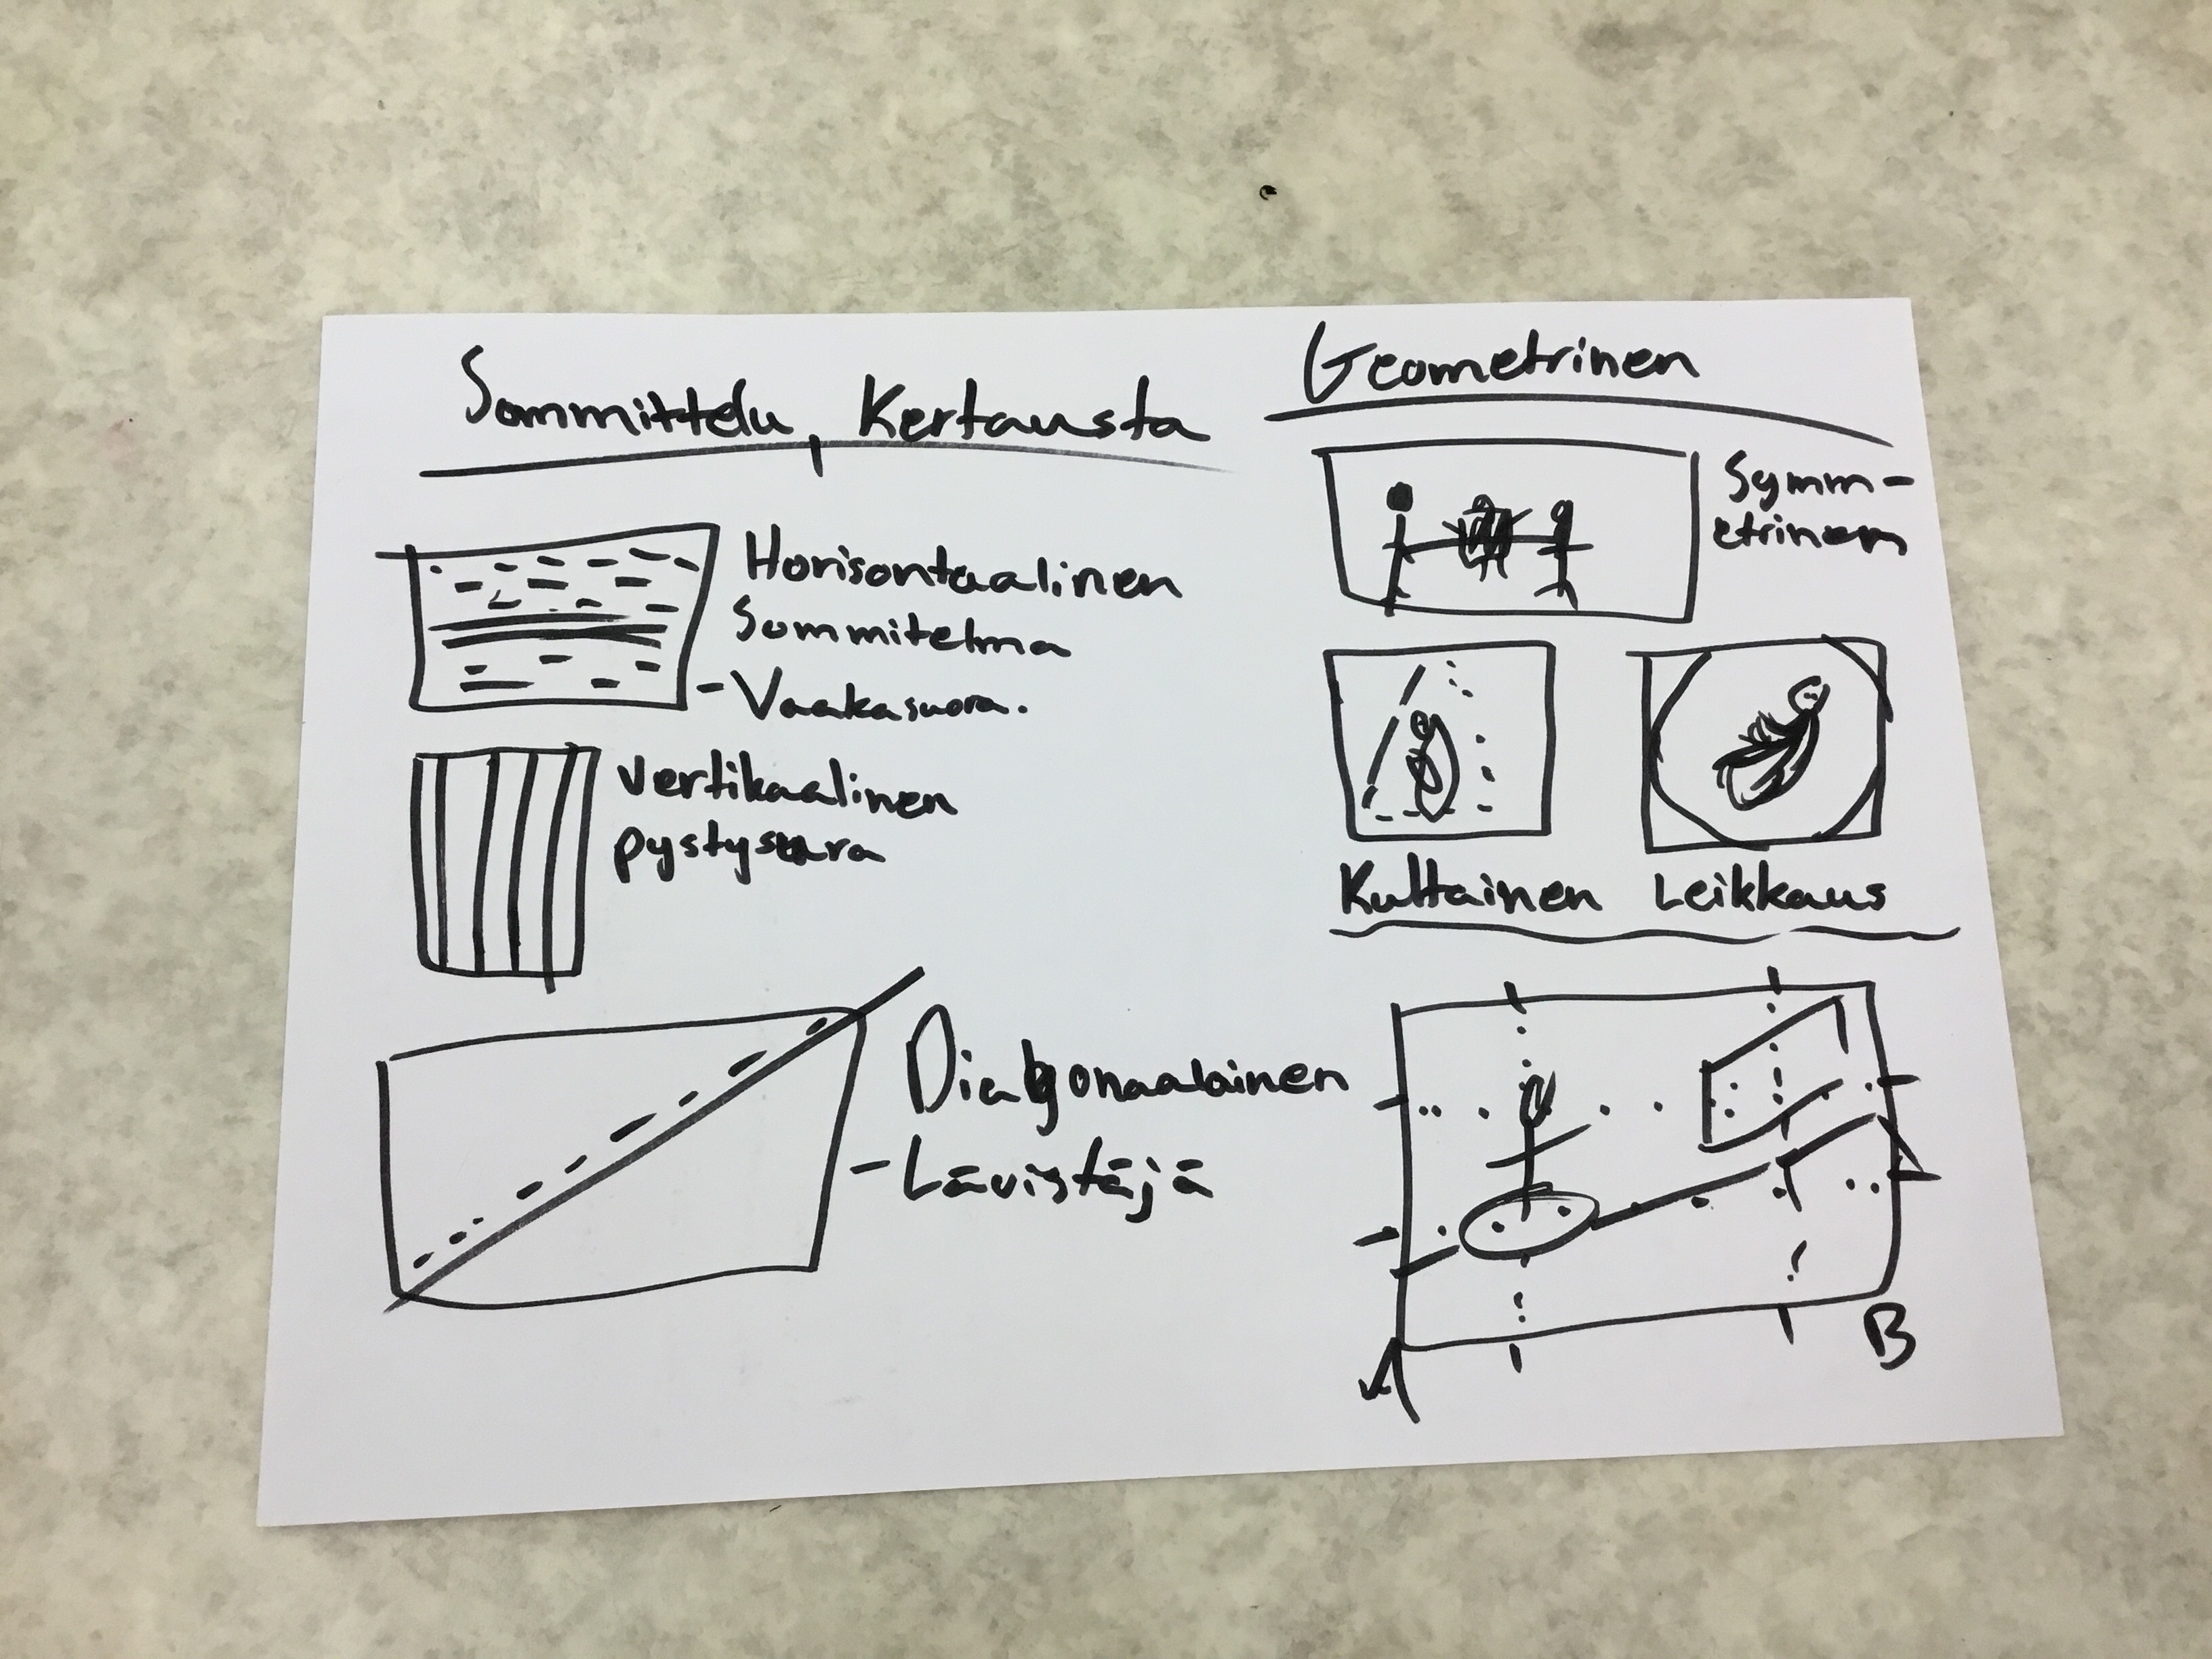 Sommittelu, Kertausta
Horisontaalinen
Sommitelma
- Vaakasuora.
Vertikaalinen
pystysuora
Diagonaalainen
- Lävistäjä
Geometrinen
Symm-
etrinen
Kultainen Leikkaus
A
B